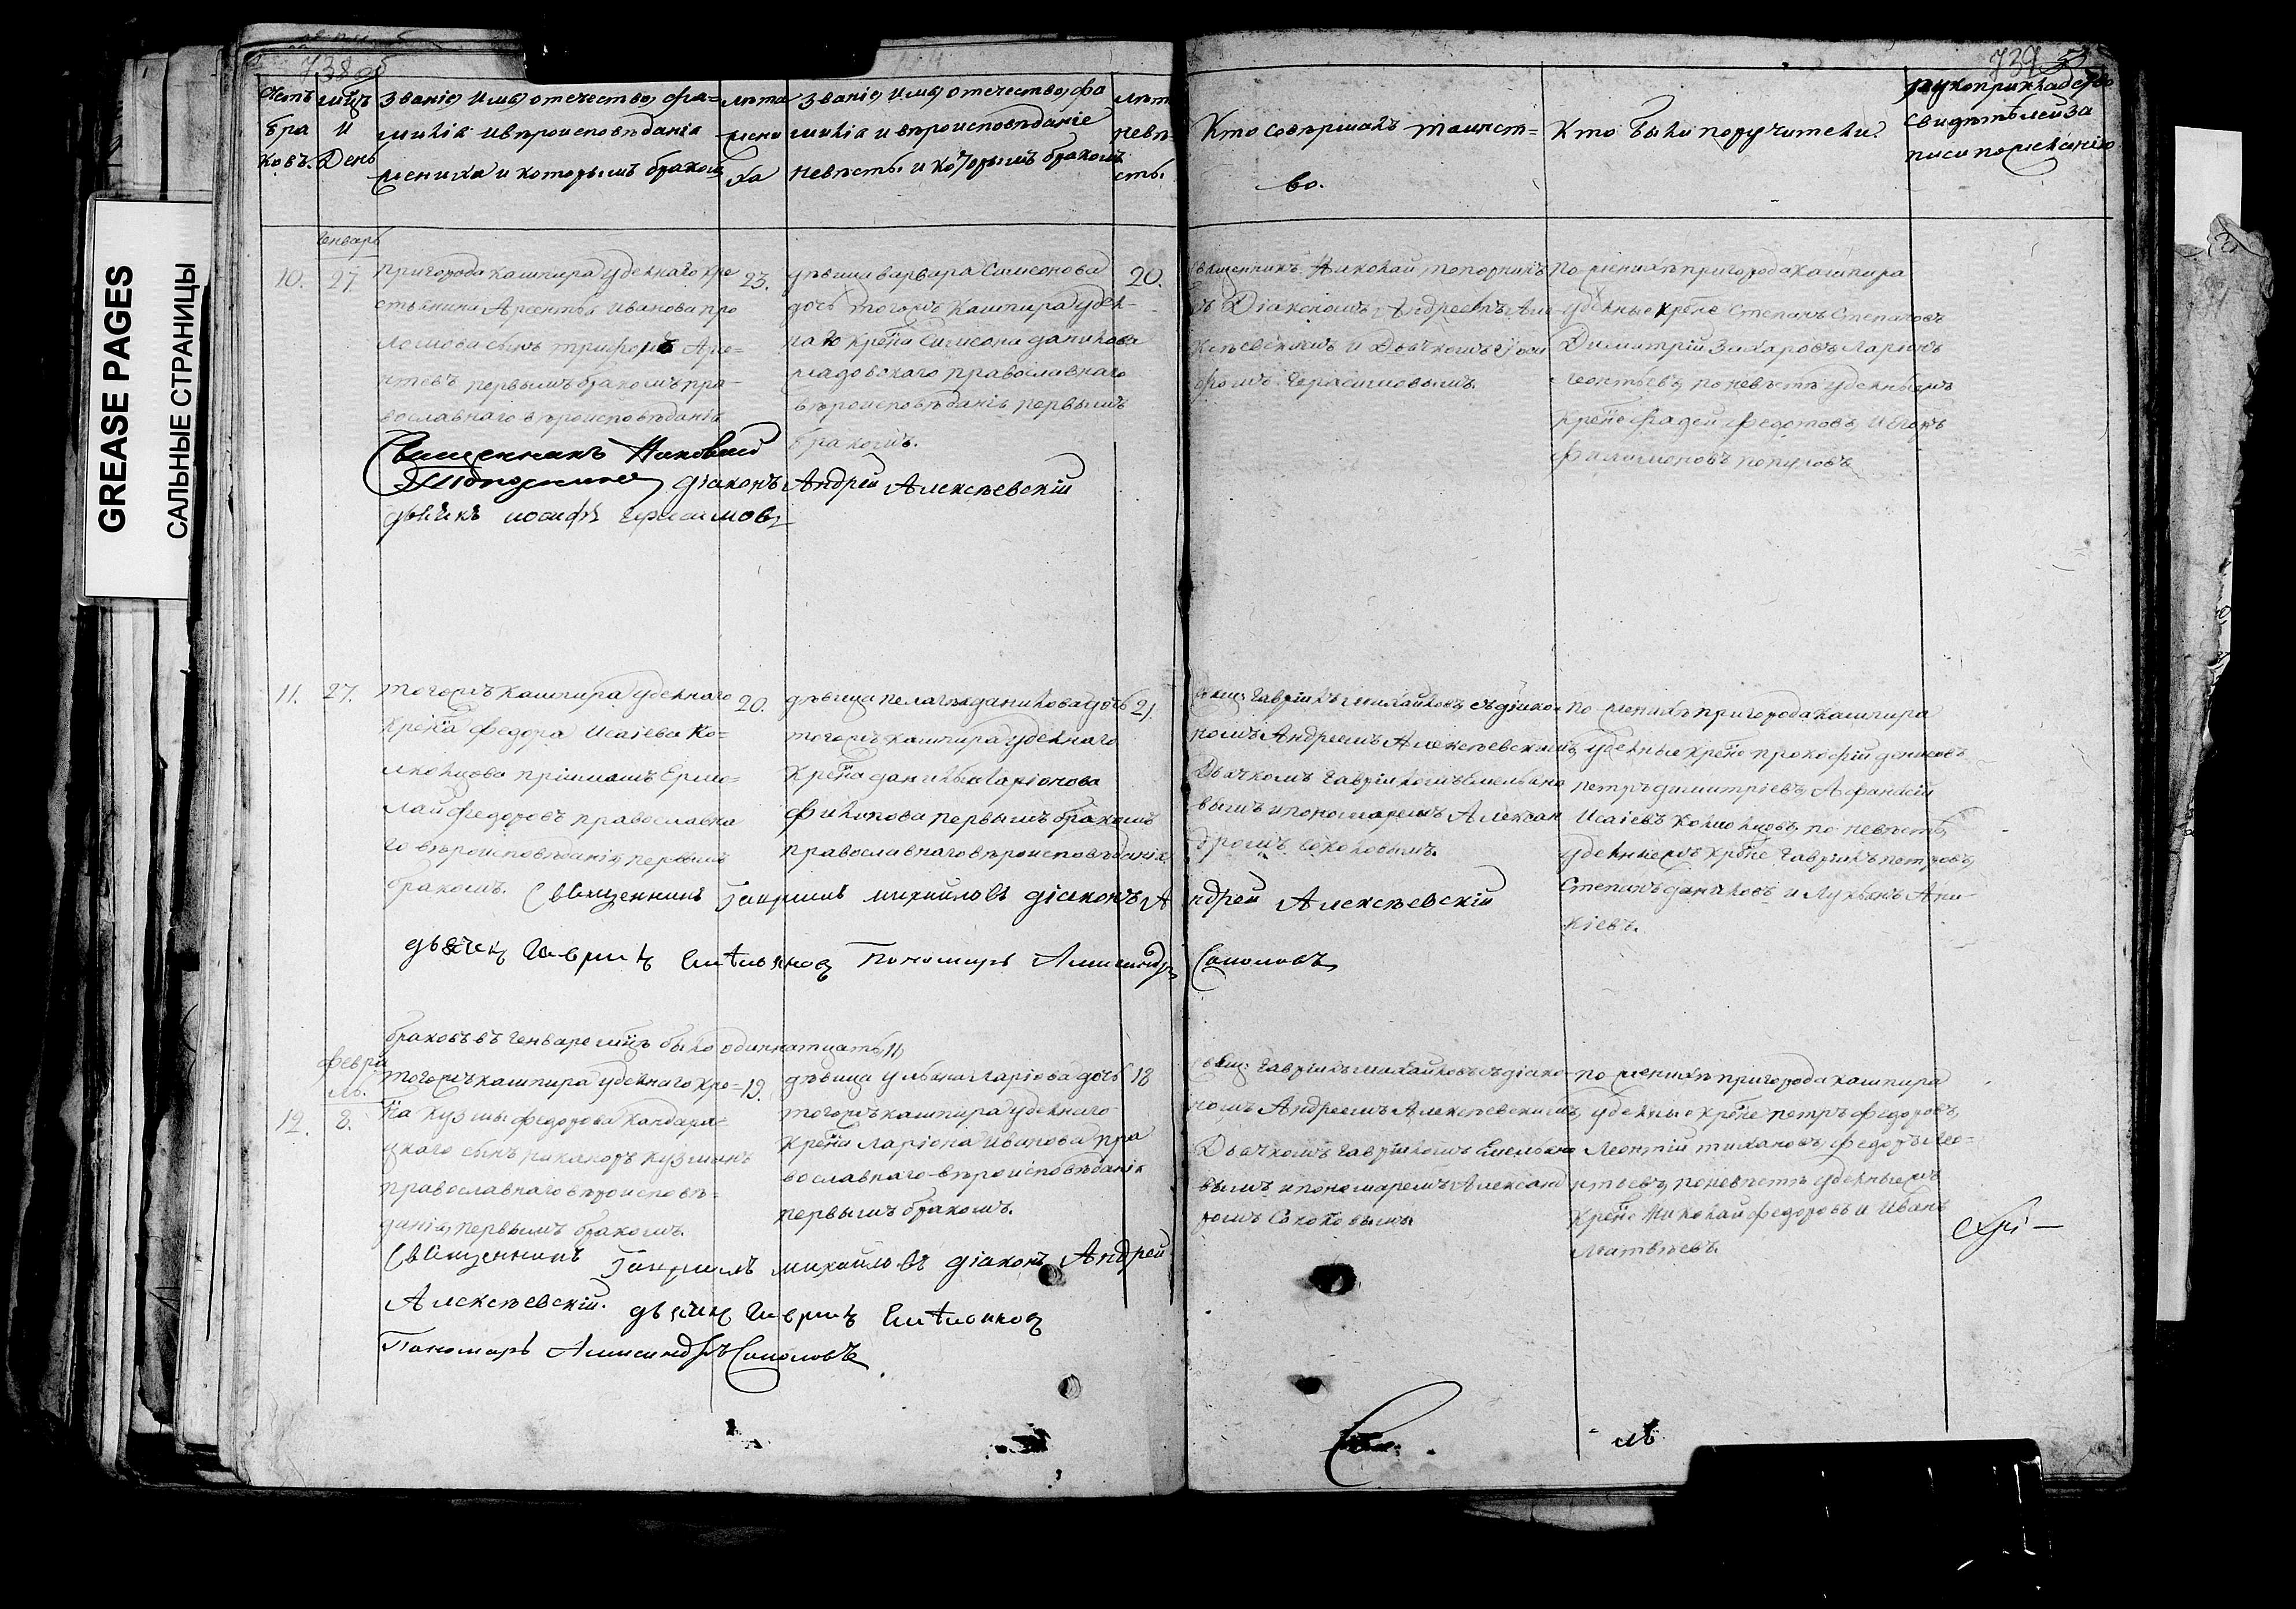 GREASE PAGES
САЛЬНЫЕ СТРАНИЦЫ
738об
739
Щетъ
бра
ковъ.
мцъ
и
День
Званіе, имя, отечество, фа=
милія и вѣроисповѣданіе
жениха и которымъ бракомъ
лѣта
жени
ха
Званіе, имя, отечество, фа
милія и вѣроисповѣданіе
невѣсты и которымъ бракомъ
лѣта
невѣ
сты
Кто совѣршалъ таинст=
во.
Кто были поручители.
рукоприкладство
свидѣтѣлей за
писи по желанію
Генварь
10.
27.
пригорода Кашпира удѣлнаго кре
стьянина Арсентья Иванова
сынъ Трифонъ Арсе=
нтевъ первымъ бракомъ пра-
вославнаго вѣроисповѣданія
23.
дѣвица Варвара Симеонова
дочь тогожъ Кашпира удел-
наго креna Симеона Данилова
православнаго
вѣроисповѣданія первымъ
бракомъ.
20.
священникъ Николай Топорнинъ
съ Діакономъ Андреемъ Але-
ксѣевскимъ и Дьячкомъ Іоси
фомъ Герасимовымъ.
по женихѣ пригорода Кашпира
удѣлные крене Степанъ Степановъ
Димитрій Захаровъ Ларіонъ
Леонтьевъ, по невѣстѣ удельныежъ
крене Фадей Федотовъ, и Егоръ
Филимоновъ
Священникъ Николай
Топорнинъ діаконъ Андрей Алексѣевскій
дьячекъ иосифъ герасимовъ
11.
27.
тогожъ Кашпира уделнаго
крена Федора Исаіева Ко=
лмовцова пріимышъ Ермо=
лай Федоровъ православна
го вѣроисповѣданія, первымъ
бракомъ.
20.
дѣвица Пелагѣя Данилова дочь
тогожъ Кашпира уделнаго
крена Данилы Ларіонова
Филипова первымъ бракомъ
православнаго вѣроисповѣданія.
21.
свящ. Гавріилъ Михайловъ, съ діако
номъ Андреемъ Алексѣевскимъ,
Дьячкомъ Гавріиломъ Емельяно
вымъ и пономаремъ Алексан
дромъ Соколовымъ.
по женихѣ пригорода Кашпира
уделные крене Прокофій Денисовъ
Петръ Димитріевъ, Афанасій
Исаіевъ Колмовцовъ, по невѣстѣ,
уделныежъ крене, Гавріилъ Петровъ,
Степанъ Даниловъ и Лукьянъ Ани-
кіевъ.
Священникъ Гавріилъ михайловъ діаконъ Андрей Алексѣевскій
дьячекъ Гавріилъ Емельяновъ Пономарь Александръ Соколовъ
браковъ въ Генваре мцѣ было одиннатцать, 11,
Февра
ль.
12.
8.
тогожъ Кашпира уделнаго кре=
на Кузмы Федорова
сынъ Никаноръ Кузминъ
православнаго вѣроисповѣ=
данія, первымъ бракомъ.
19.
дѣвица Ульяна Ларіова дочь
тогожъ Кашпира уделнаго
крена Ларіона Иванова пра
вославнаго вѣроисповѣданія
первымъ бракомъ.
18
свящ. Гавріилъ Михайловъ съ діако-
номъ Андреемъ Алексѣевскимъ,
Дьячкомъ Гавріиломъ Емельяно
вымъ и пономаремъ Александ
ромъ Соколовымъ.
по женихѣ пригорода Кашпира
уделные крене Петръ Федоровъ,
Леонтій Тихановъ, Федоръ Лео=
нтьевъ, по невѣстѣ уделныежъ
крене Николай Федоровъ и Иванъ
Матвѣевъ.
Священникъ Гавріилъ михайловъ діаконъ Андрей
Алексѣевскій. дьячекъ Гавріилъ Емельяновъ
Пономарь Александръ Соколовъ